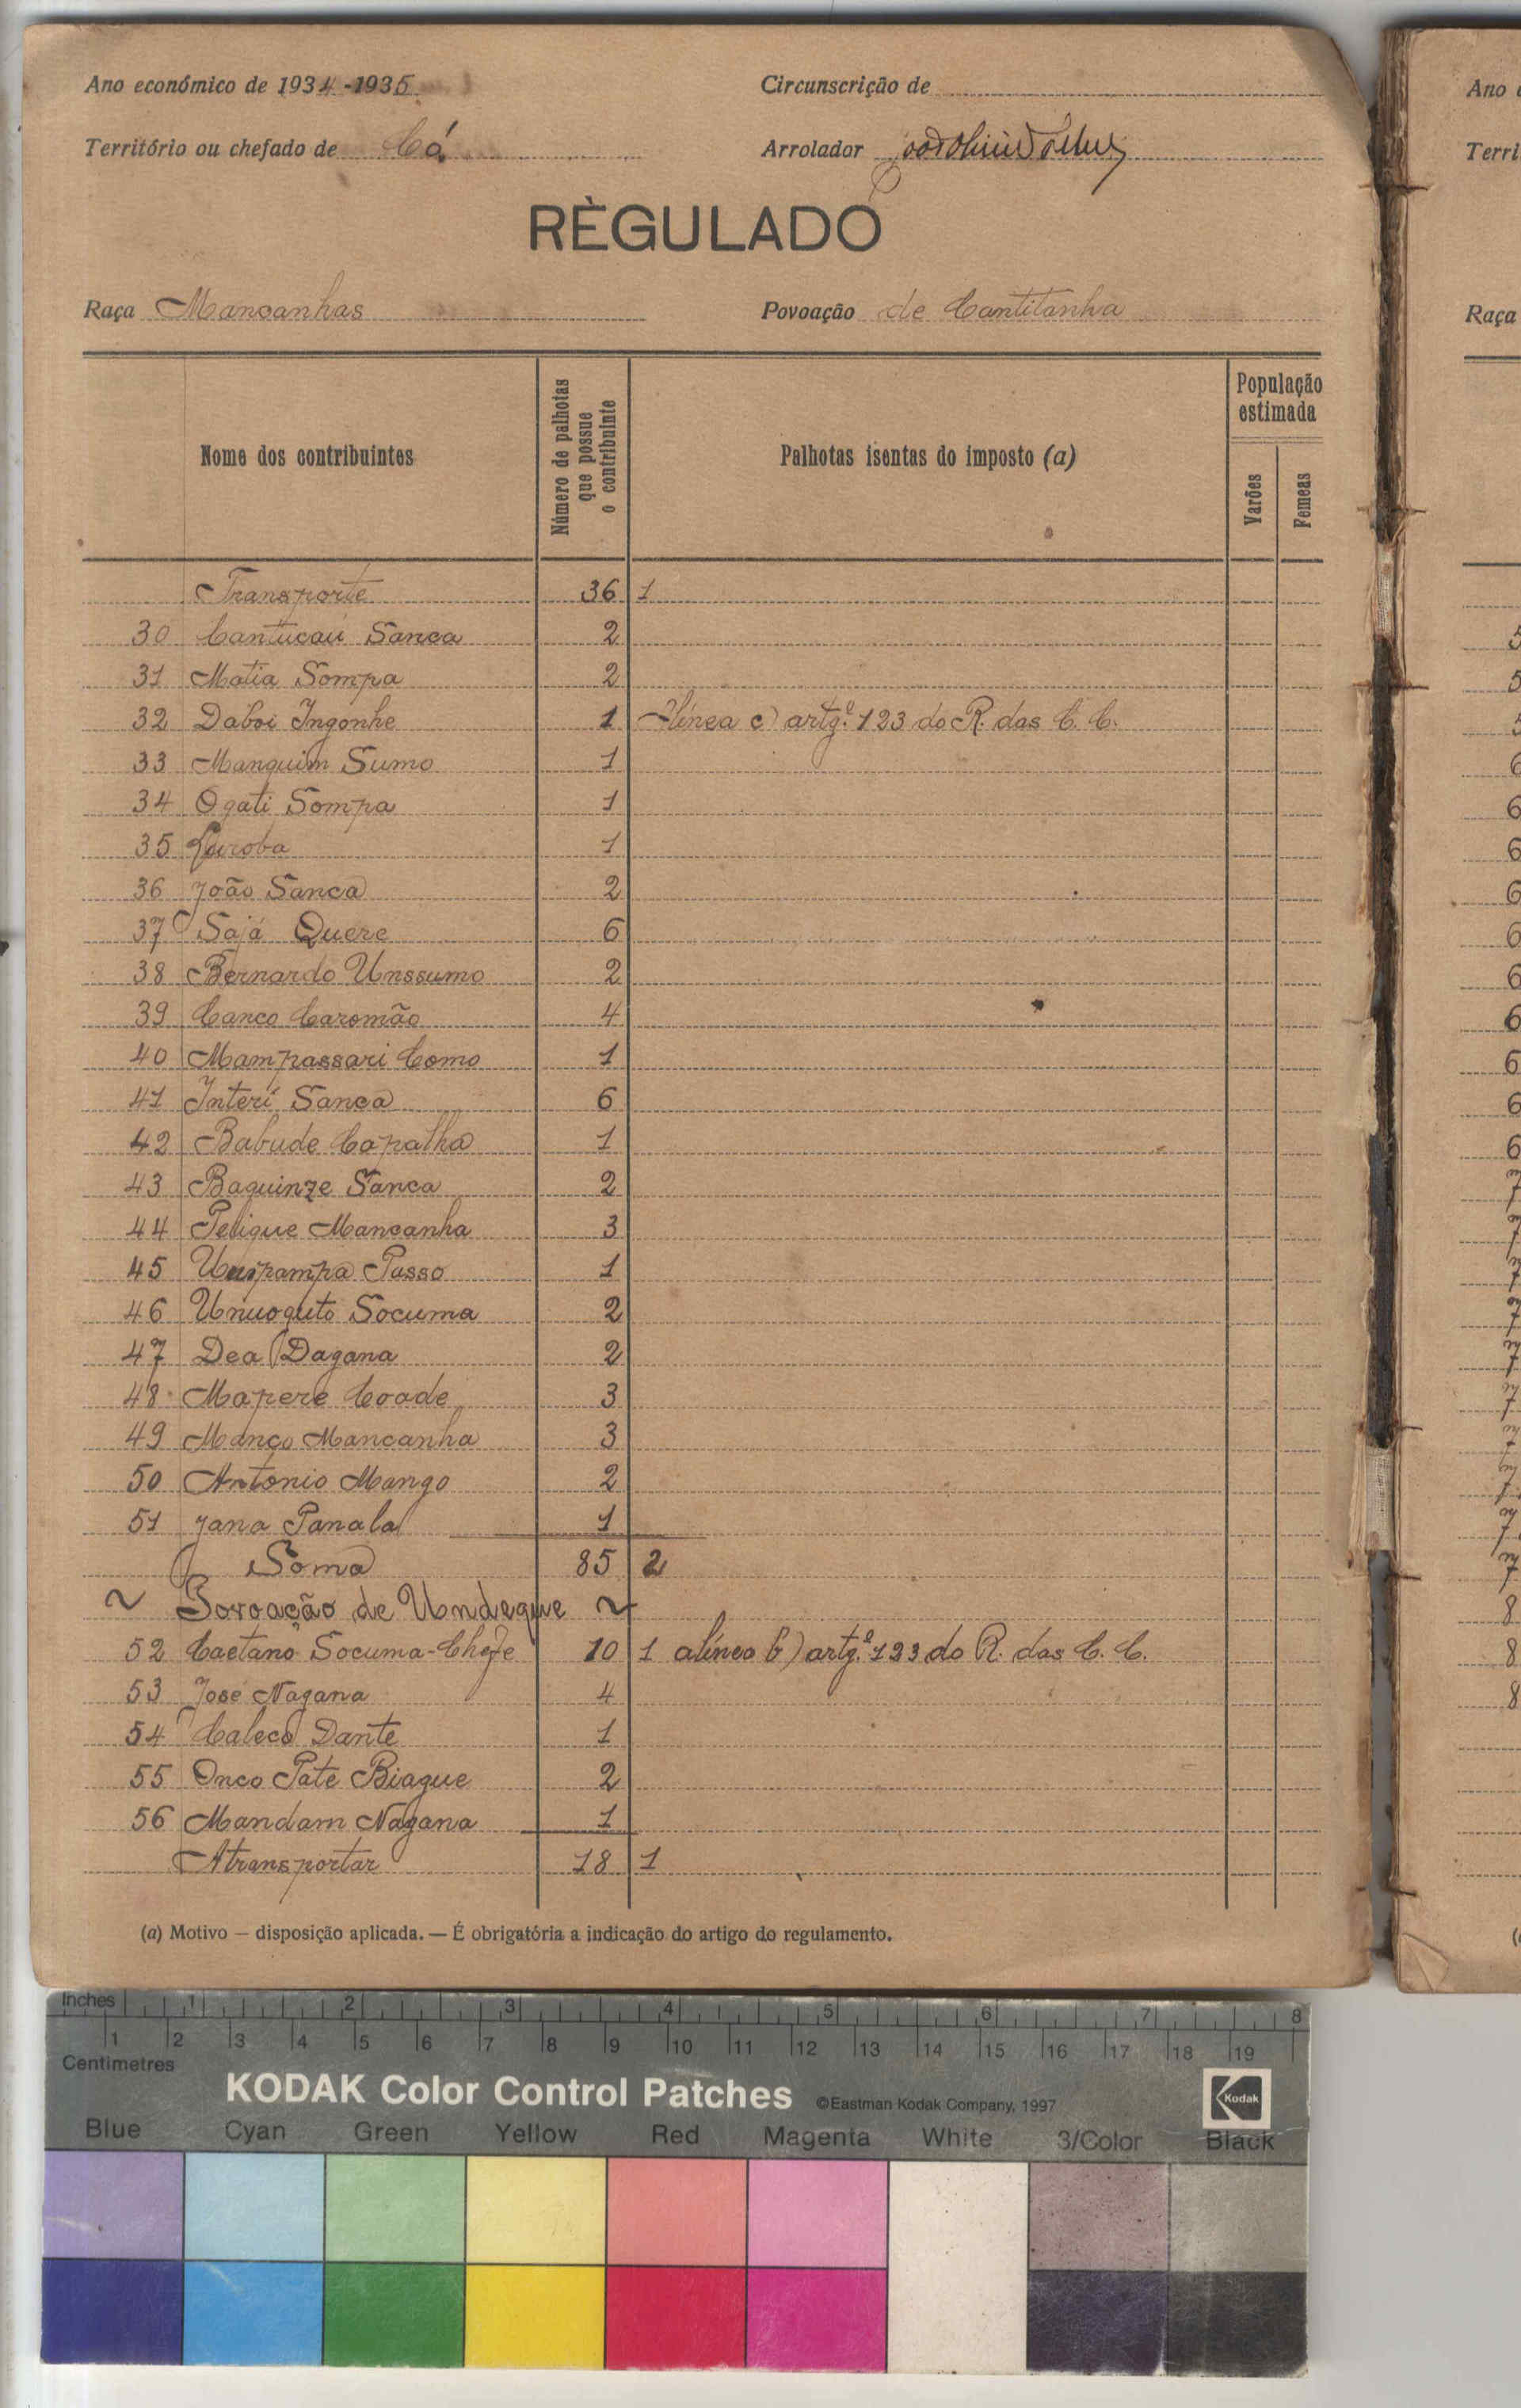 Ano económico de 1934-1935
Circunscrição de
Território ou chefado de Có
Arrolador
RÈGULADO
Raça Mancanhas
Povoação de Cantitanha
Nome dos contribuintes
Número de palhotas que possue o contribuinte
Palhotas isentas do imposto (a)
População estimada
Varões
Femeas
Transporte 36 1
30 Cantucaú Sanca 2
31 Matia Sompa 2
32 Daboi Ingonhe 1 alínea c) artgº. 123 do R. das C. C.
33 Manquim Sumo 1
34 Ogati Sompa 1
35 1
36 João Sanca 2
37 Sajá Quere 6
38 Bernardo Unssumo 2
39 Canco Caromão 4
40 Mampassari Como 1
41 Interi Sanca 6
42 Babude Capalha 1
43 Baquinze Sanca 2
44 Pelique Mancanha 3
45 Passo 1
46 Unuoquto Socuma 2
47 Dea Dagana 2
48 Mapere Coade 3
49 Manço Mancanha 3
50 António Mango 2
51 Jana Panala 1
Soma 85 2
~ Povoação de Undeque ~
52 Caetano Socuma-Chefe 10 1 alínea b) artgº. 123 do R. das C. C.
53 José Nagana 4
54 Caleco Dante 1
55 Onco Paté Biague 2
56 Mandam Nagana 1
Atransportar 18 1
(a) Motivo — disposição aplicada. — É obrigatória a indicação do artigo do regulamento.
Ano
Terri
Raça
Inches 1 2 3 4 5 6 7 8
1 2 3 4 5 6 7 8 9 10 11 12 13 14 15 16 17 18 19
Centimetres
KODAK Color Control Patches ©Eastman Kodak Company, 1997
Kodak
Blue Cyan Green Yellow Red Magenta White 3/Color Black